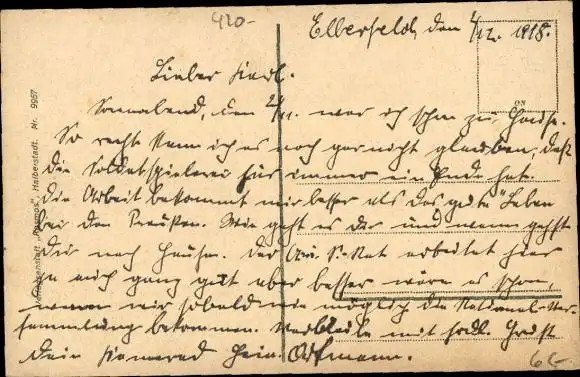 420-
Elberfeld, den 4/12. 1918.
Lieber Karl.
Sonnabend, den 2/11. war ich schon zu Hause.
So recht kann ich es noch gar nicht glauben, daß
die Soldatspielerei für immer ein Ende hat.
Die Arbeit bekommt mir besser als das gute Leben
bei den Preußen. Wie geht es dir und wann gehst
du nach Hause. Der S.-Rat arbeitet hier
ja auch ganz gut aber besser wäre es schon,
wenn wir sobald wie möglich die National-Ver-
sammlung bekommen. Verbleibe mit frdl. Gruß
Dein Kamerad Hein.
Verlagsanstalt „Kosmos", Halberstadt. Nr. 9967